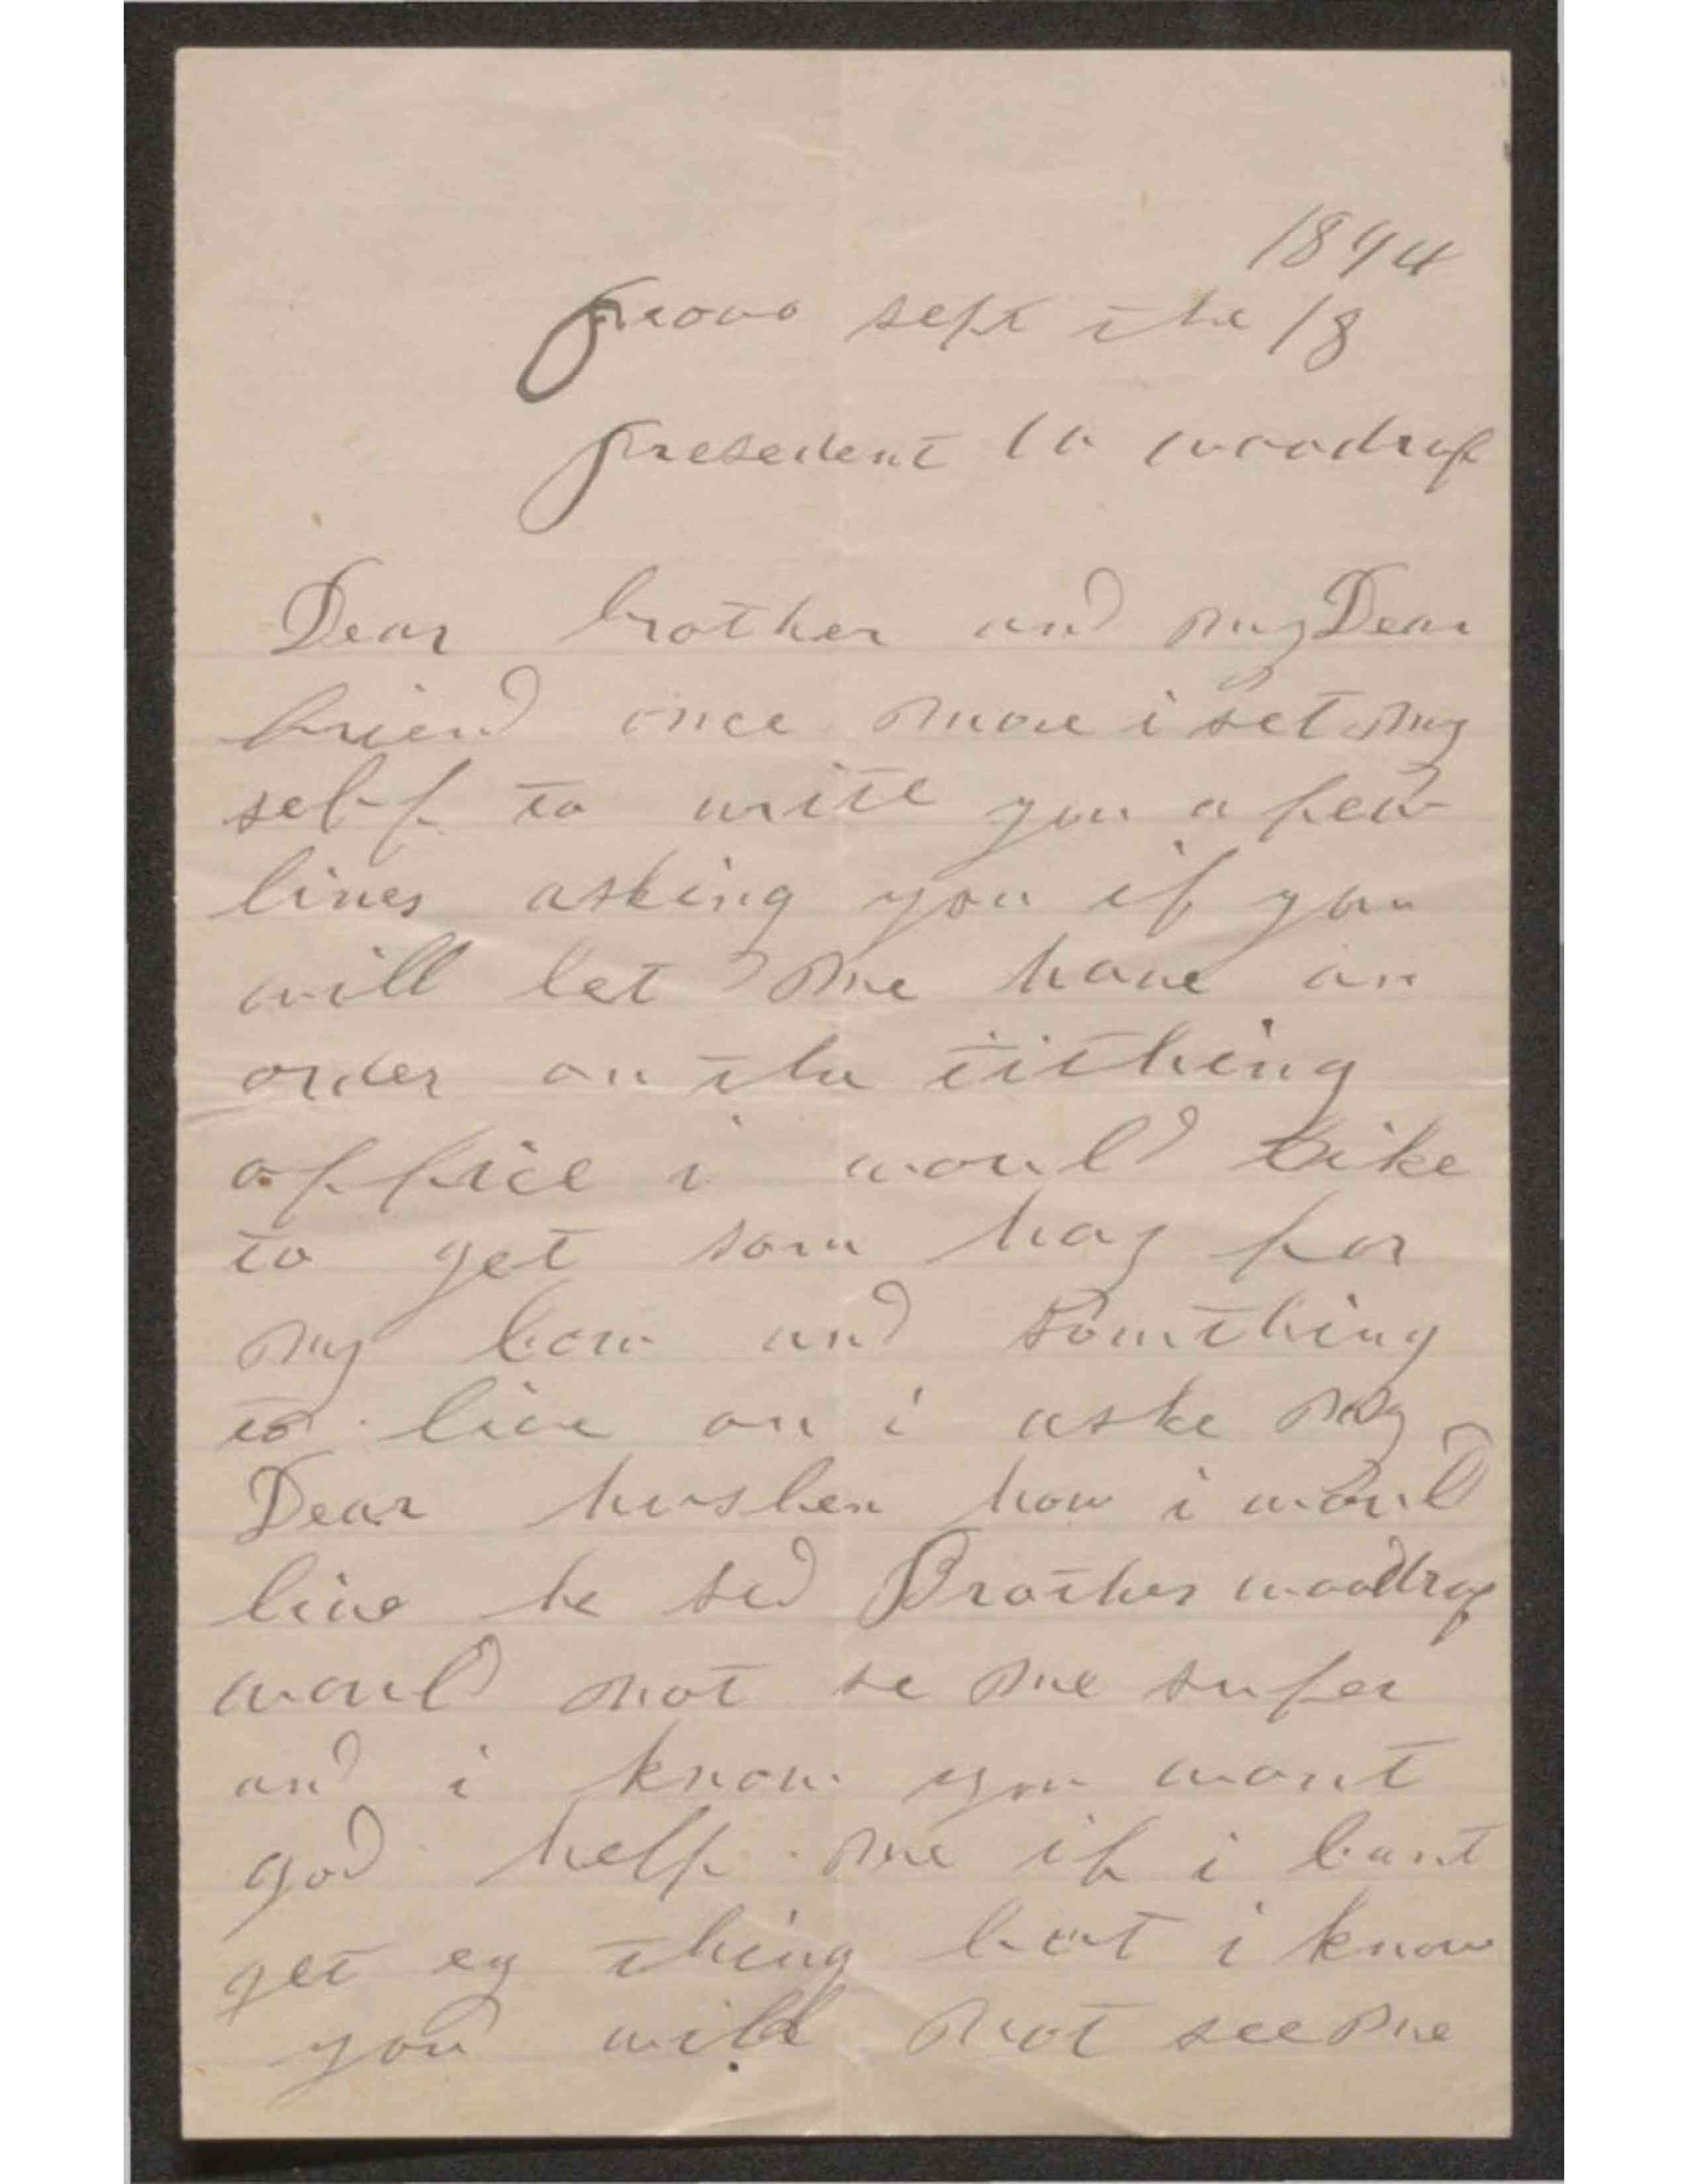 1894
provo sept the 18
presedent W woodruf
Dear brother and my Dear
friend once more i set my
self to write you a few
lines asking you if you
will let me have an
order on the tithing
office i would like
to get som hay for
my cow and somthing
to live on i aske my
Dear husben how i would
live he sed Brother woodruf
would not se me sufer
and i know you wont
god help me if i cant
get eny thing but i know
you will not see me